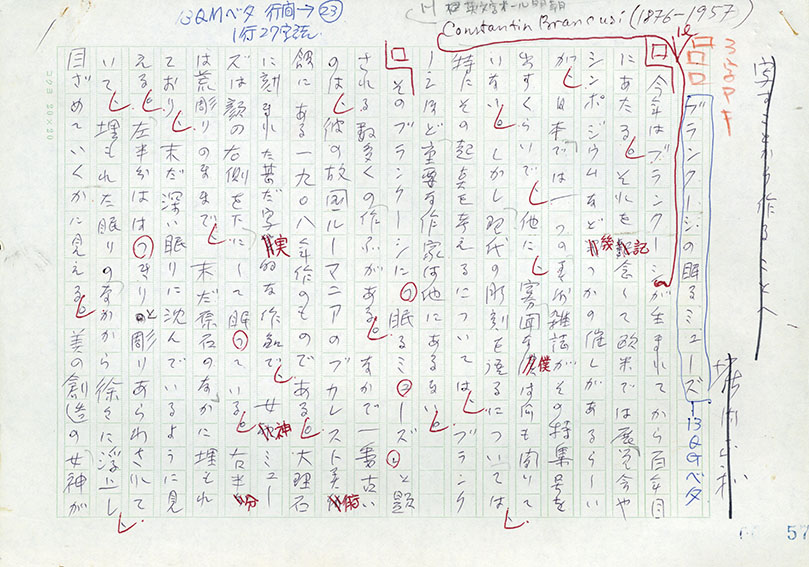 13QMベタ 行間→23
1行27字詰
Constantin Brancusi (1876-1957)
写すことから作ることへ
3字アキ
ブランクーシの眠るミューズ
13QGベタ
今年はブランクーシが生まれてから百年目
にあたる。それを記念して欧米では展覧会や
シンポジウムなどつかの催しがあるらしい
が、日本では一つの美術雑誌がその特集号を
出すくらいで、他に、寡聞な僕は何も聞いて
いない。しかし現代の彫刻を語るについては、
特にその起点を考えるについては、ブランク
ーシほど重要な作家は他にあるまい。
そのブランクーシに「眠るミューズ」と題
される数多くの作品がある。なかで一番古い
のは、彼の故国ルーマニアのブカレスト美術
館にある一九〇八年作のものである。大理石
に刻まれた甚だ写実的な作品で、女神ミュー
ズは顔の右側を下にして眠っている。右半分
は荒彫りのままで、未だ原石のなかに埋もれ
ており、未だ深い眠りに沈んでいるように見
える。左半分ははっきりと彫りあらわされて
いて、埋もれた眠りのなかから徐々に浮上し、
目ざめていくかに見える。美の創造の女神が
コクヨ 20×20
57